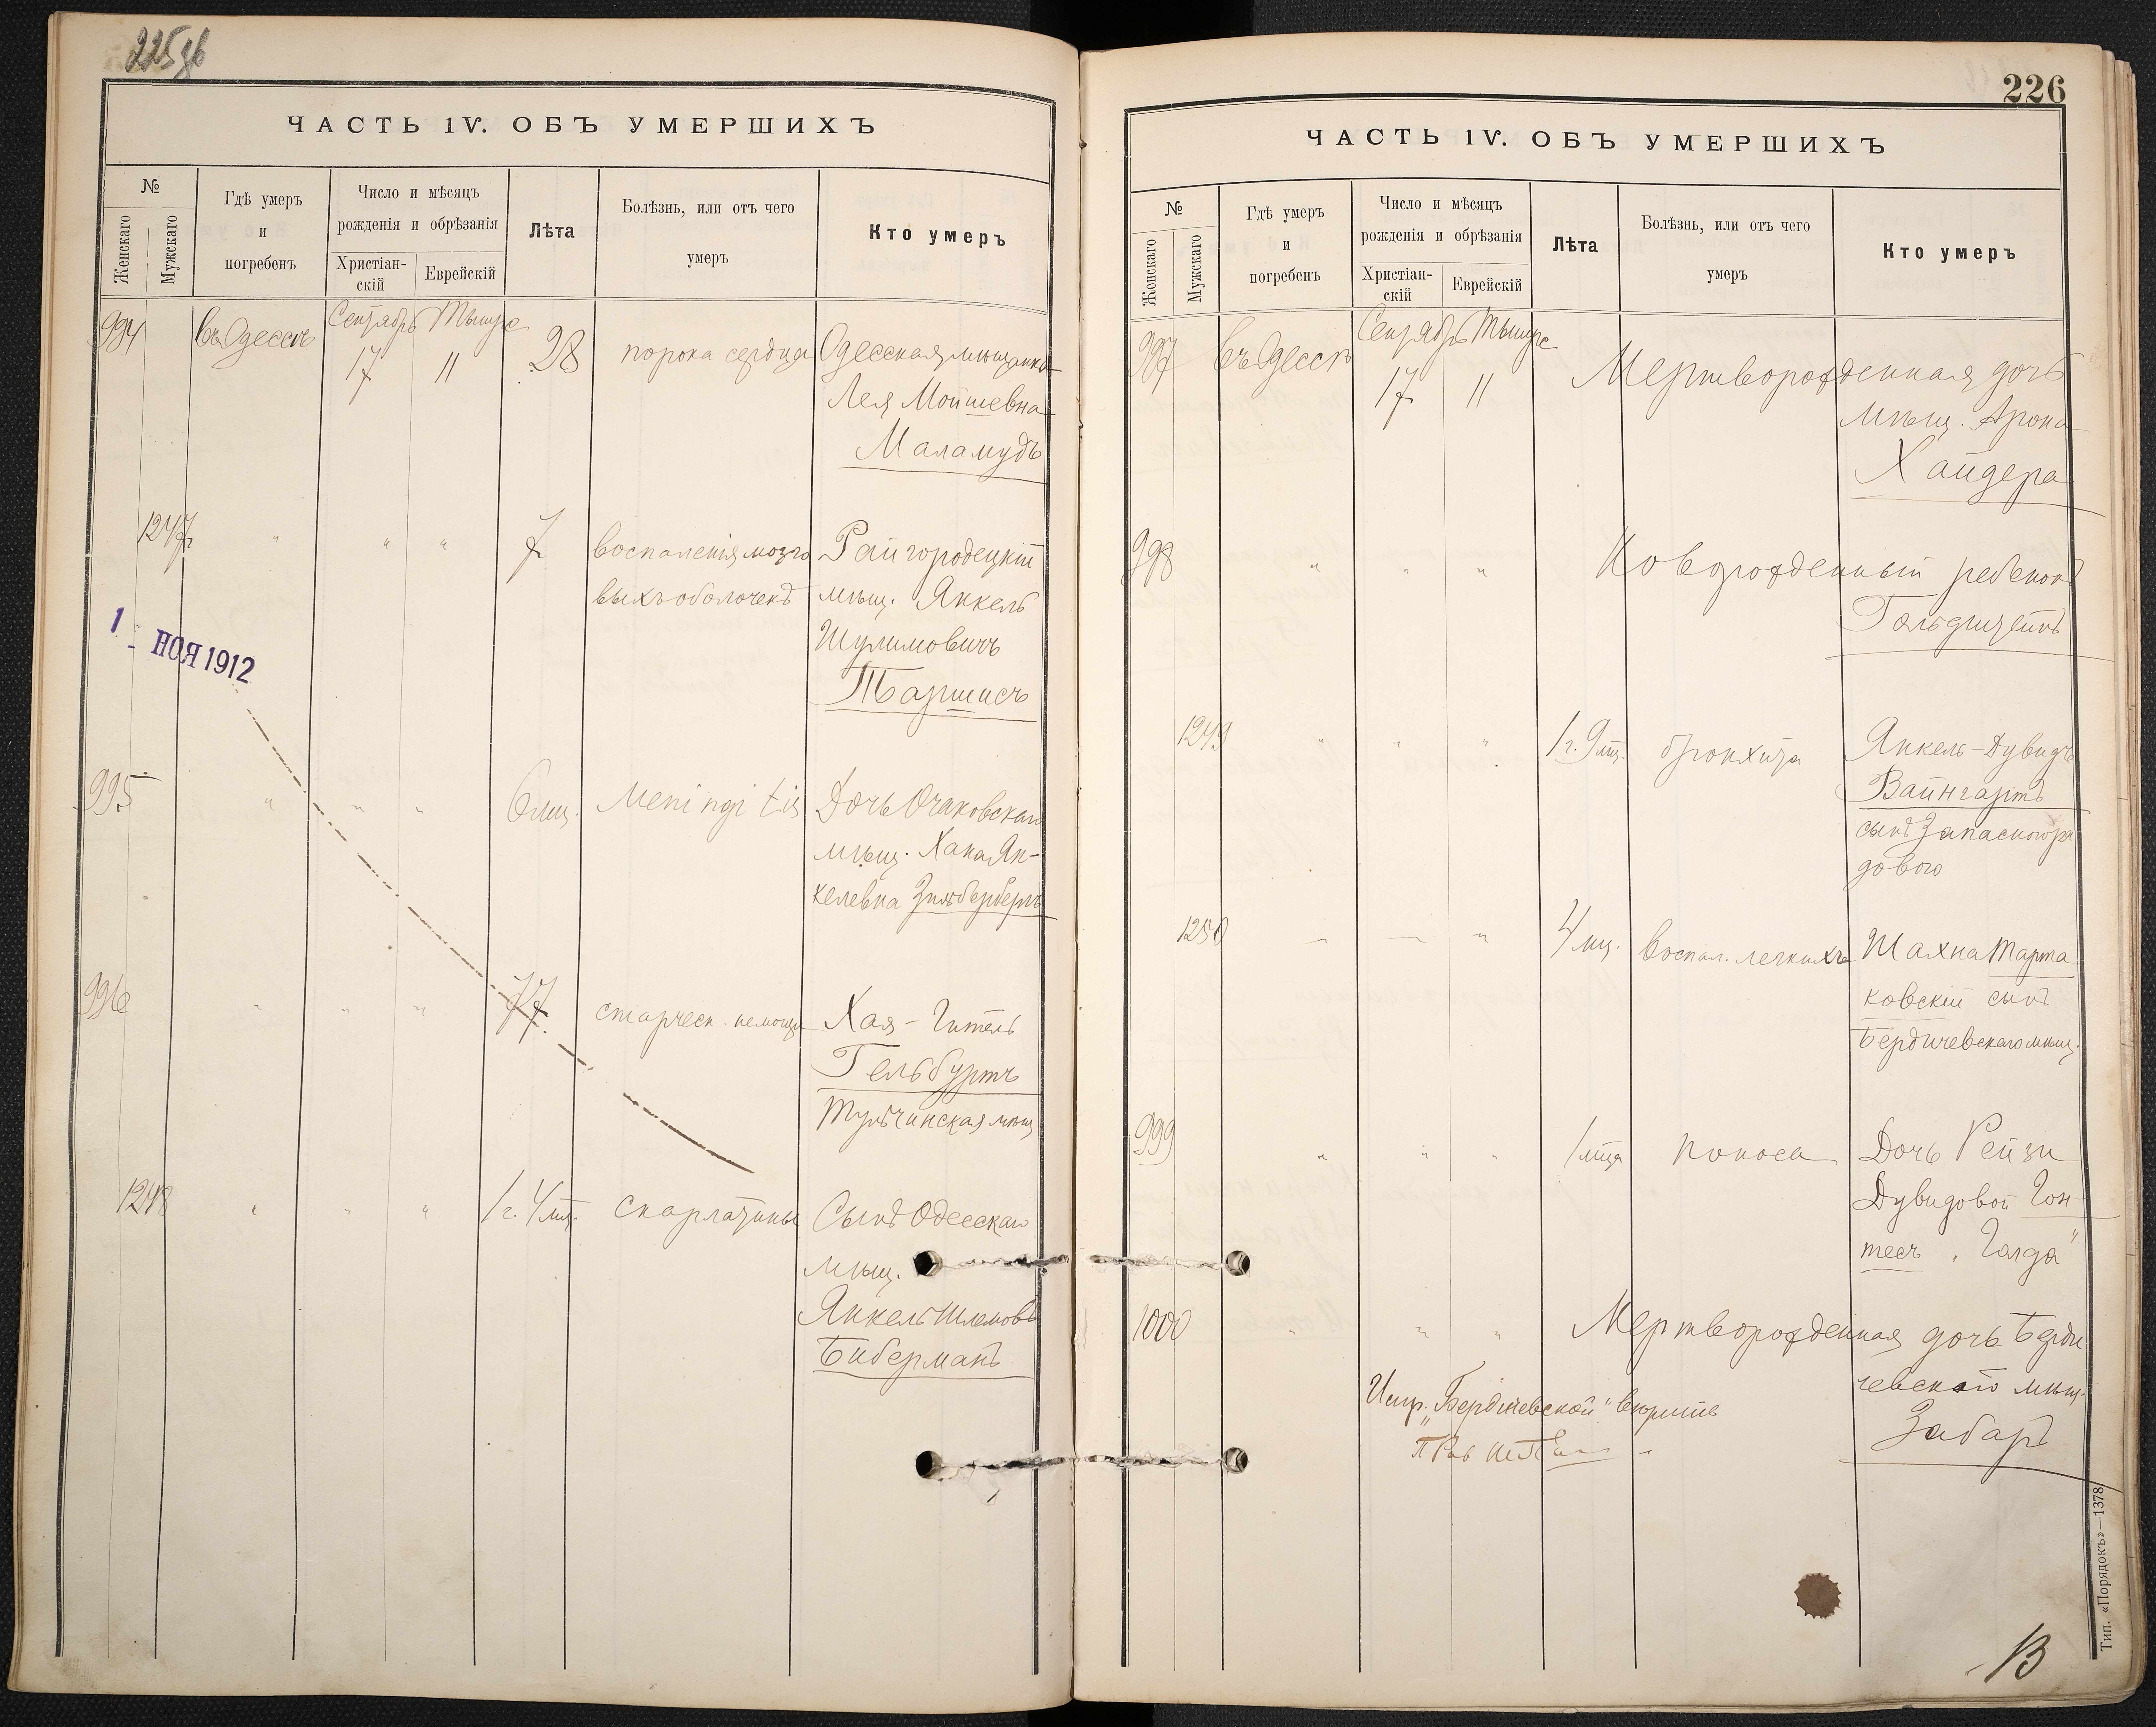 225 об
ЧАСТЬ IV. ОБЪ УМЕРШИХЪ
№
Женскаго
Мужскаго
Гдѣ умеръ
и
погребенъ
Число и мѣсяцъ
рожденія и обрѣзанія
Христіан-
скій
Еврейскій
Лѣта
Болѣзнь, или отъ чего
умеръ
Кто умеръ
994 въ Одессѣ Сентябрь 17 Тышре 11 28 порока сердца Одесская мѣщанка
Лея Мойшевна
Маламудъ
1247 " " " 7 воспаленія мозго Райгородецкій
выхъ оболочекъ мѣщ. Янкель
Шулимовичъ
Таршисъ
1 - НОЯ 1912
995 " " " 6 мц. Meningitis Дочь Очаковскаго
мѣщ. Хана Ян-
келевна Зильбербергъ
996 " " " 77 старческ. немощи Хая-Гитель
Гельбуртъ
Тульчинская мѣщ
1248 " " " 1 г. 4 мц. скарлатины Сынъ Одесскаго
мѣщ.
Янкель Шлемовъ
Биберманъ
226
ЧАСТЬ IV. ОБЪ УМЕРШИХЪ
№
Женскаго
Мужскаго
Гдѣ умеръ
и
погребенъ
Число и мѣсяцъ
рожденія и обрѣзанія
Христіан-
скій
Еврейскій
Лѣта
Болѣзнь, или отъ чего
умеръ
Кто умеръ
997 въ Одессѣ Сентябрь 17 Тышре 11 Мертворожденная дочь
мѣщ. Арона
Хайдера
998 " " " Новорожденный ребенокъ
Гольдштейнъ
1249 " " " 1 г. 9 мц. бронхита Янкель-Дувидъ
Вайнгартъ
сынъ Запасного ря
дового
1250 " " " 4 мц. воспал. легкихъ Шахна Марта
ковскій сынъ
Бердичевскаго мѣщ.
999 " " " 1 мца поноса Дочь Рейзи
Дувидовой Гон-
тесъ „Голда"
1000 " " " Мертворожденная дочь Берди
чевскаго мѣщ.
Забаръ
Испр. „Бердичевской" вѣрить
13
Тип. «Порядокъ»—1378.